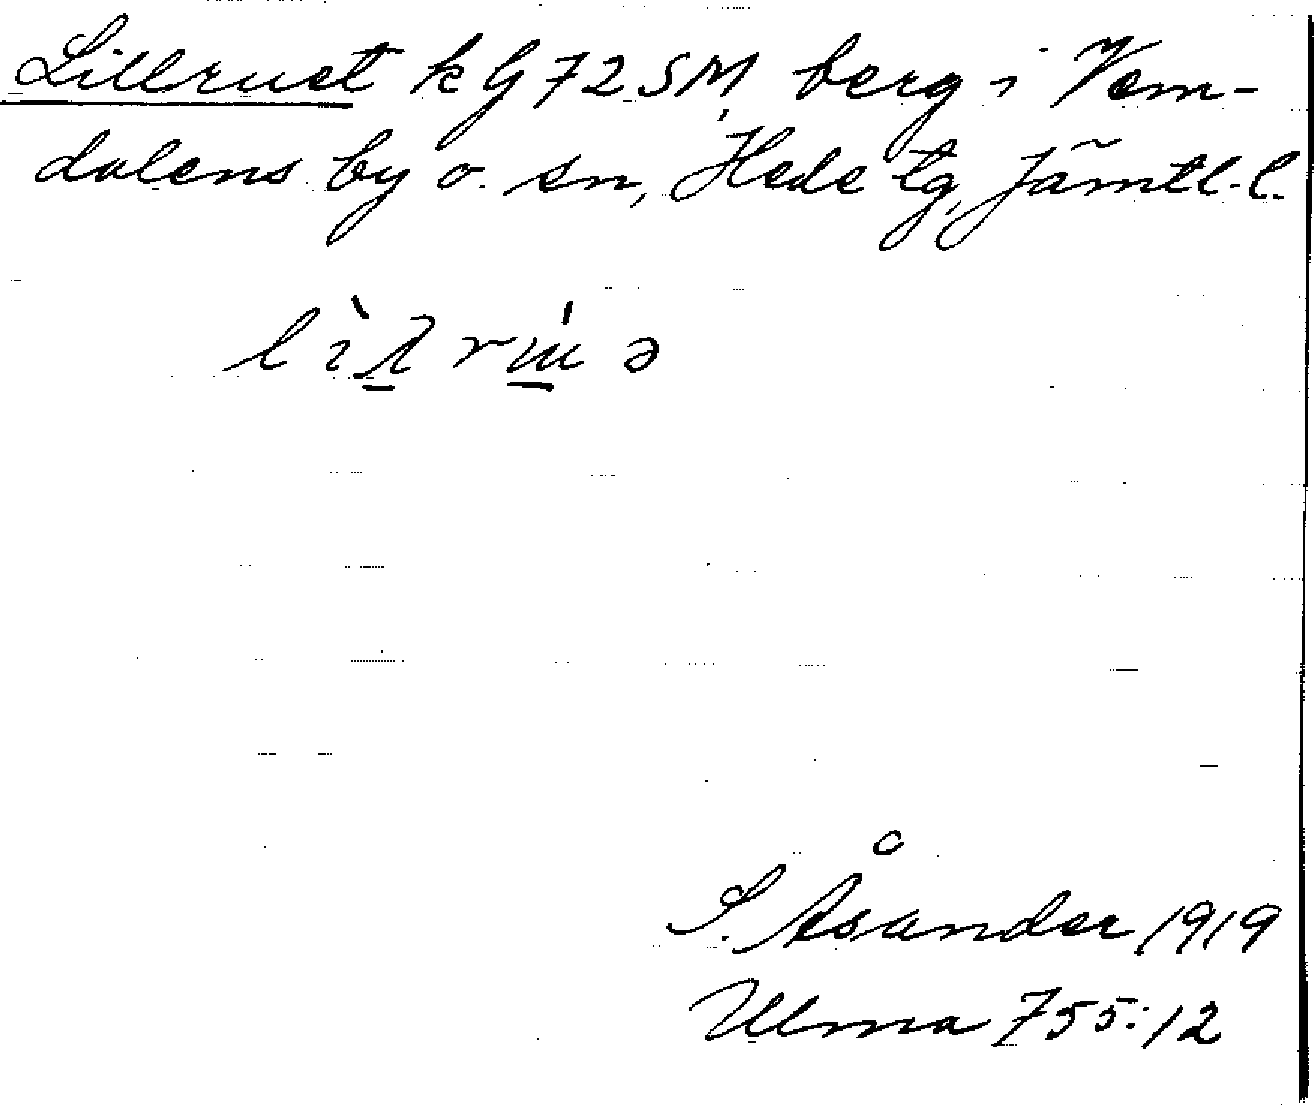 Lillruet k G 72 SM, berg i Vem-
dalens by o. sn, Hede tg, Jämtl. l.
S. Åsander 1919
Ulma 755:12